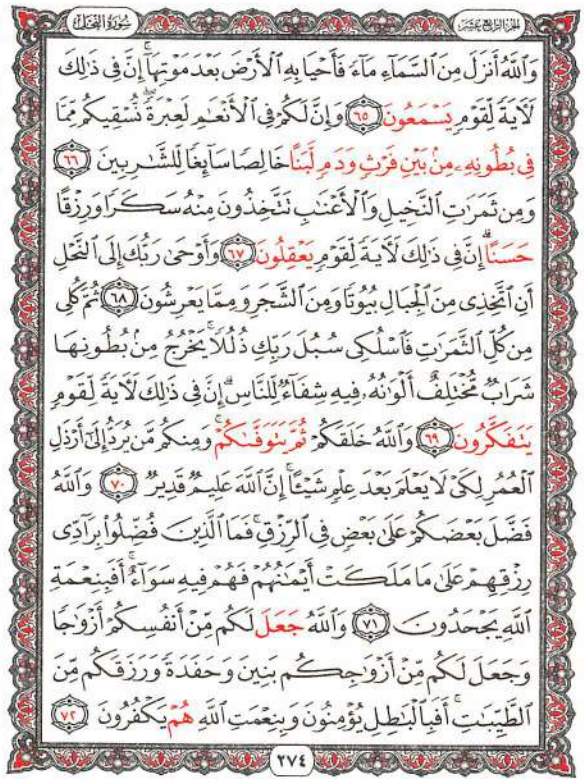 سُورَةُ النَّحْلِ الجُزْءُ الرَّابِعَ عَشَرَ
وَٱللَّهُ أَنزَلَ مِنَ ٱلسَّمَآءِ مَآءً فَأَحْيَا بِهِ ٱلْأَرْضَ بَعْدَ مَوْتِهَآۚ إِنَّ فِى ذَٰلِكَ
لَءَايَةً لِّقَوْمٍ يَسْمَعُونَ ٦٥ وَإِنَّ لَكُمْ فِى ٱلْأَنْعَٰمِ لَعِبْرَةًۖ نُّسْقِيكُم مِّمَّا
فِى بُطُونِهِۦ مِنۢ بَيْنِ فَرْثٍ وَدَمٍ لَّبَنًا خَالِصًا سَآئِغًا لِّلشَّٰرِبِينَ ٦٦
وَمِن ثَمَرَٰتِ ٱلنَّخِيلِ وَٱلْأَعْنَٰبِ تَتَّخِذُونَ مِنْهُ سَكَرًا وَرِزْقًا
حَسَنًاۗ إِنَّ فِى ذَٰلِكَ لَءَايَةً لِّقَوْمٍ يَعْقِلُونَ ٦٧ وَأَوْحَىٰ رَبُّكَ إِلَى ٱلنَّحْلِ
أَنِ ٱتَّخِذِى مِنَ ٱلْجِبَالِ بُيُوتًا وَمِنَ ٱلشَّجَرِ وَمِمَّا يَعْرِشُونَ ٦٨ ثُمَّ كُلِى
مِن كُلِّ ٱلثَّمَرَٰتِ فَٱسْلُكِى سُبُلَ رَبِّكِ ذُلُلًاۚ يَخْرُجُ مِنۢ بُطُونِهَا
شَرَابٌ مُّخْتَلِفٌ أَلْوَٰنُهُۥ فِيهِ شِفَآءٌ لِّلنَّاسِۗ إِنَّ فِى ذَٰلِكَ لَءَايَةً لِّقَوْمٍ
يَتَفَكَّرُونَ ٦٩ وَٱللَّهُ خَلَقَكُمْ ثُمَّ يَتَوَفَّىٰكُمْۚ وَمِنكُم مَّن يُرَدُّ إِلَىٰٓ أَرْذَلِ
ٱلْعُمُرِ لِكَىْ لَا يَعْلَمَ بَعْدَ عِلْمٍ شَيْـًٔاۚ إِنَّ ٱللَّهَ عَلِيمٌ قَدِيرٌ ٧٠ وَٱللَّهُ
فَضَّلَ بَعْضَكُمْ عَلَىٰ بَعْضٍ فِى ٱلرِّزْقِۚ فَمَا ٱلَّذِينَ فُضِّلُوا۟ بِرَآدِّى
رِزْقِهِمْ عَلَىٰ مَا مَلَكَتْ أَيْمَٰنُهُمْ فَهُمْ فِيهِ سَوَآءٌۚ أَفَبِنِعْمَةِ
ٱللَّهِ يَجْحَدُونَ ٧١ وَٱللَّهُ جَعَلَ لَكُم مِّنْ أَنفُسِكُمْ أَزْوَٰجًا
وَجَعَلَ لَكُم مِّنْ أَزْوَٰجِكُم بَنِينَ وَحَفَدَةً وَرَزَقَكُم مِّنَ
ٱلطَّيِّبَٰتِۚ أَفَبِٱلْبَٰطِلِ يُؤْمِنُونَ وَبِنِعْمَتِ ٱللَّهِ هُمْ يَكْفُرُونَ ٧٢
٢٧٤